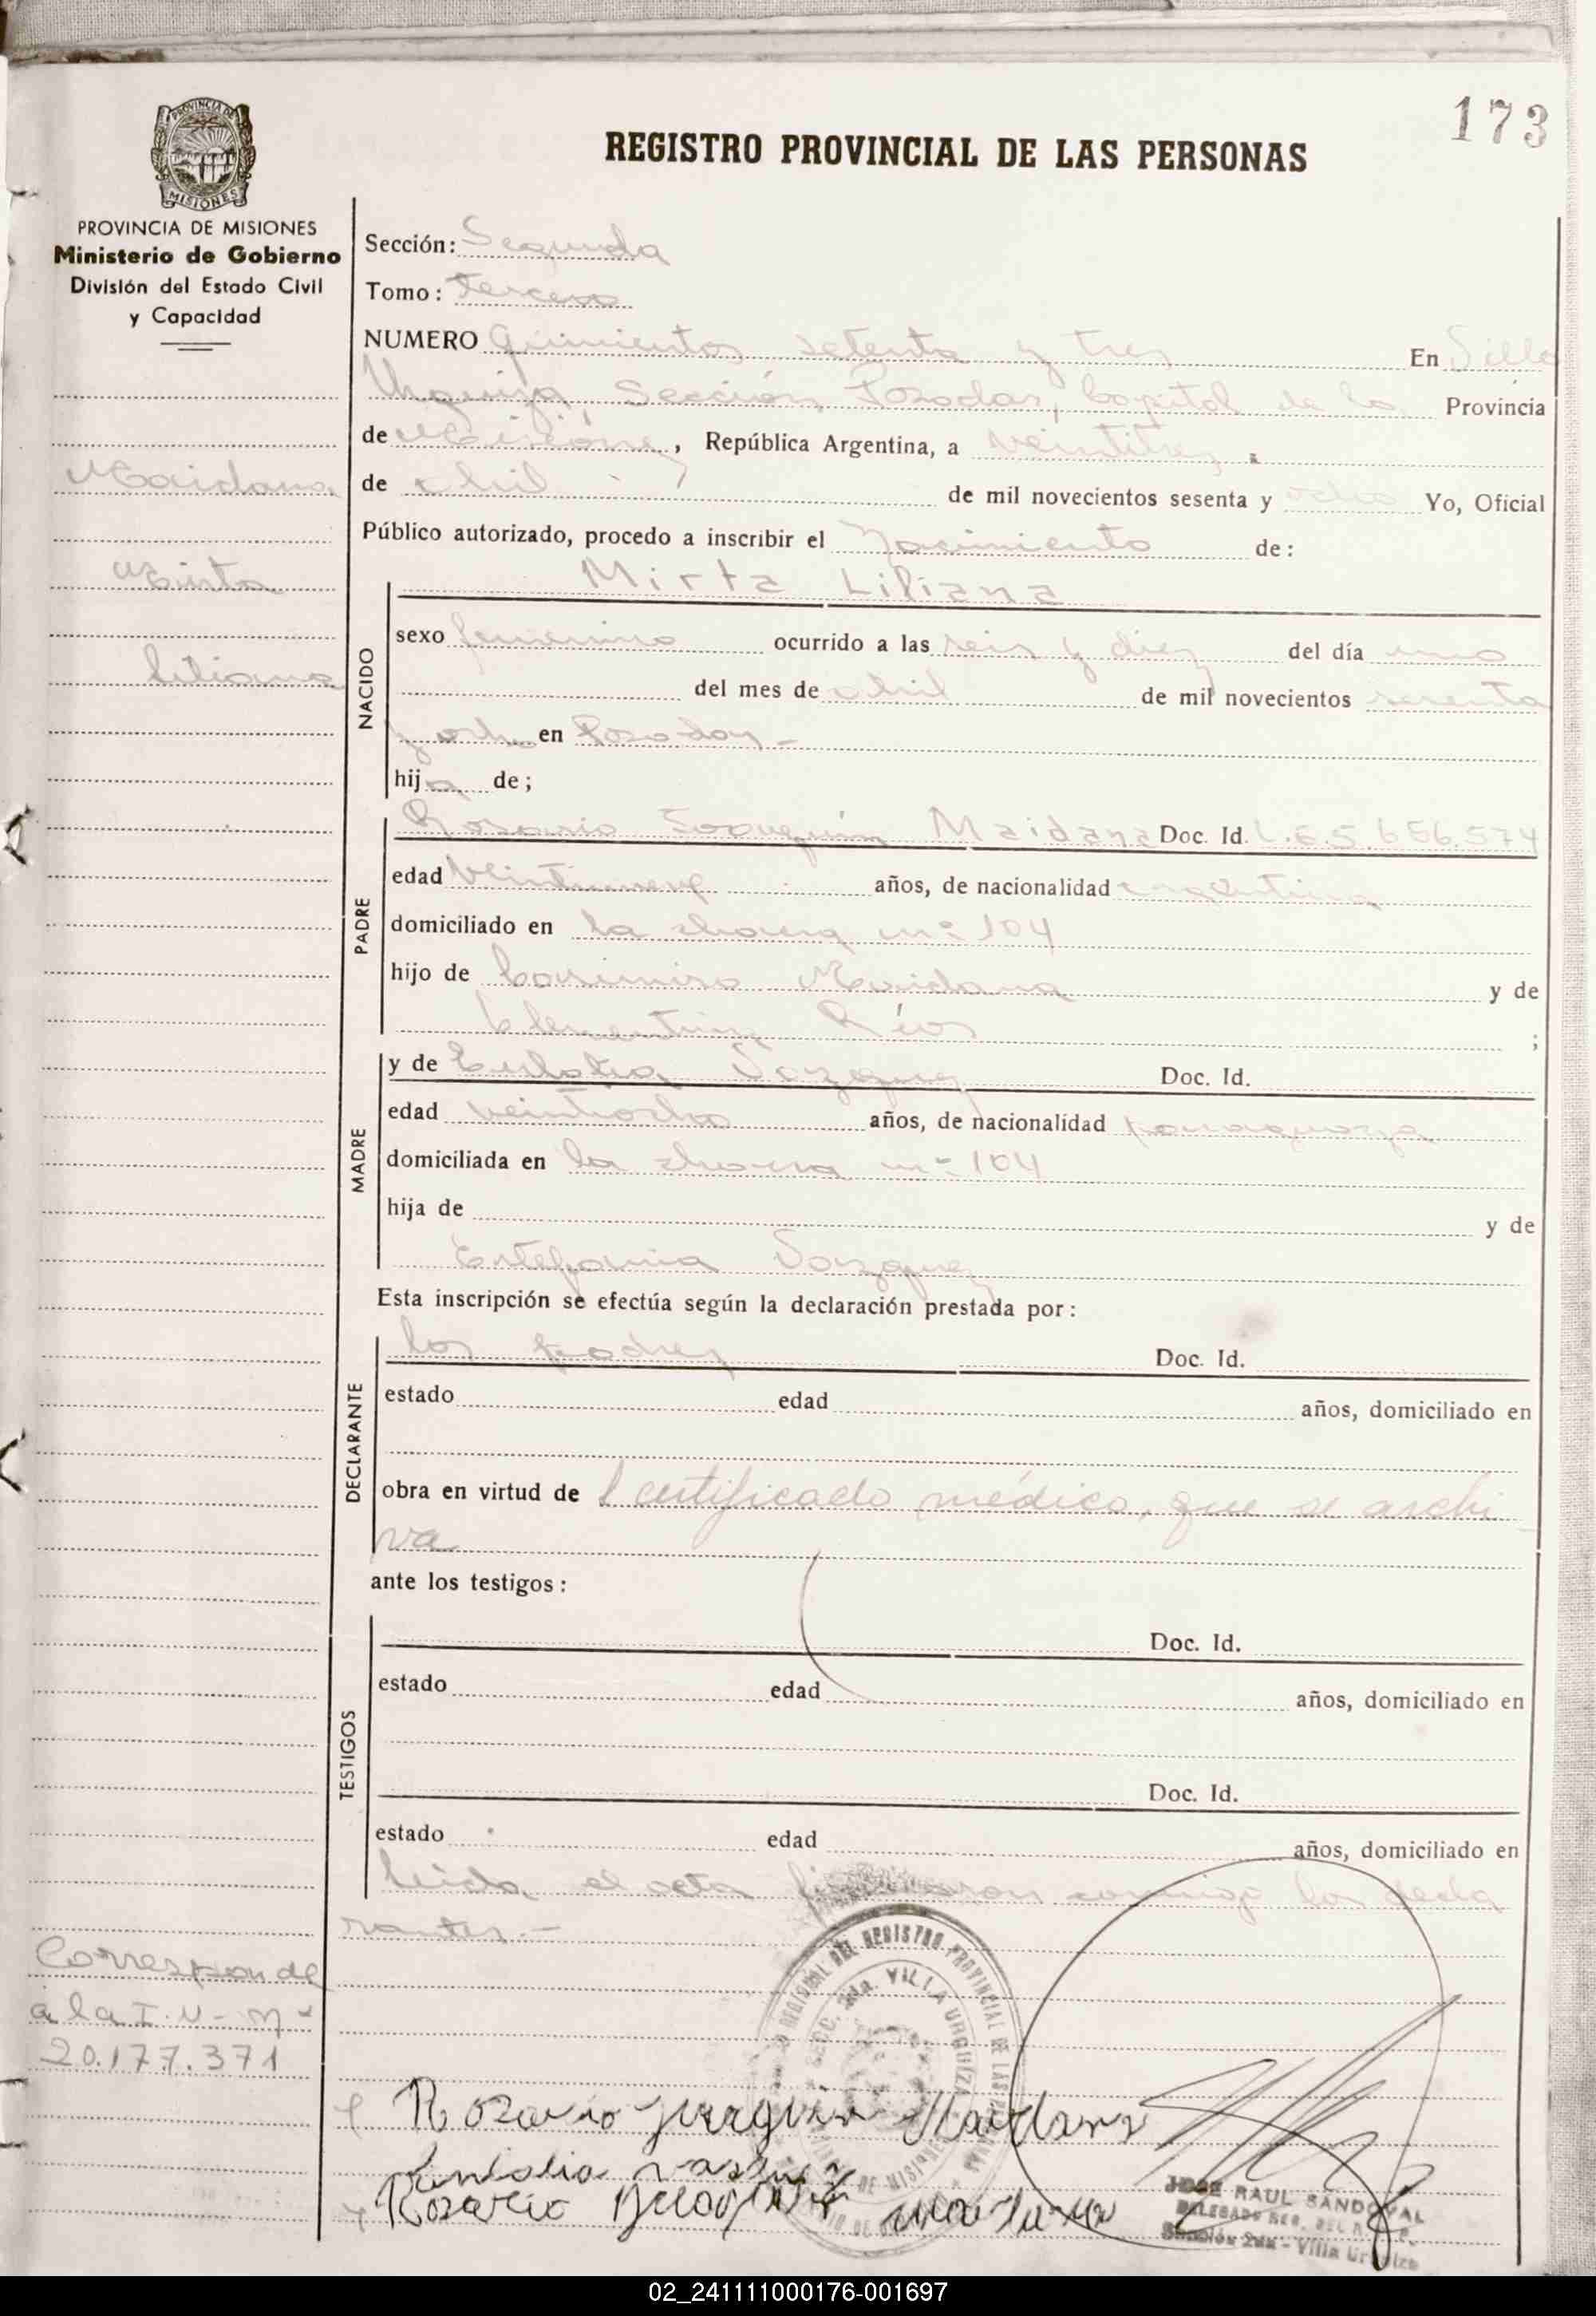 173
REGISTRO PROVINCIAL DE LAS PERSONAS
PROVINCIA DE
MISIONES
PROVINCIA DE MISIONES
Ministerio de Gobierno
División del Estado Civil
y Capacidad
Maidana
Mirta
Liliana
Sección: Segunda
Tomo: Tercero
NUMERO quinientos setenta y tres En Villa
Urquiza, Sección, Posadas, Capital de la Provincia
de Misiones, República Argentina, a veintitres
de abril de mil novecientos sesenta y ocho Yo, Oficial
Público autorizado, procedo a inscribir el Nacimiento de:
Mirta Liliana
NACIDO
sexo femenino ocurrido a las seis y diez del día uno
del mes de abril de mil novecientos sesenta
y ocho en Posadas -
hija de;
PADRE
Rosario Joaquín Maidana Doc. Id. L.E. 5.656.574
edad veintinueve años, de nacionalidad argentina
domiciliado en la chacra nº 104
hijo de Casimiro Maidana y de
Clementina Ríos ;
MADRE
y de Eulalia Vazquez Doc. Id.
edad veintiocho años, de nacionalidad paraguaya
domiciliada en la chacra nº 104
hija de y de
Estefania Vazquez
Esta inscripción se efectúa según la declaración prestada por:
DECLARANTE
los padres Doc. Id.
estado edad años, domiciliado en
obra en virtud de l certificado médico, que se archi
va
ante los testigos:
TESTIGOS
Doc. Id.
estado edad años, domiciliado en
Doc. Id.
estado edad años, domiciliado en
leida el acta firmaron conmigo los decla
rantes.-
Corresponde
a la I.U- Nº
20.177.371
REGIONAL DEL REGISTRO PROVINCIAL DE LAS
SECC. 2da. VILLA URQUIZA
Rosario Maidana
Eulalia
Rosario
JOSE RAUL SANDOVAL
DELEGADO REG. DEL
Sección 2da - Villa Urquiza
02_241111000176-001697